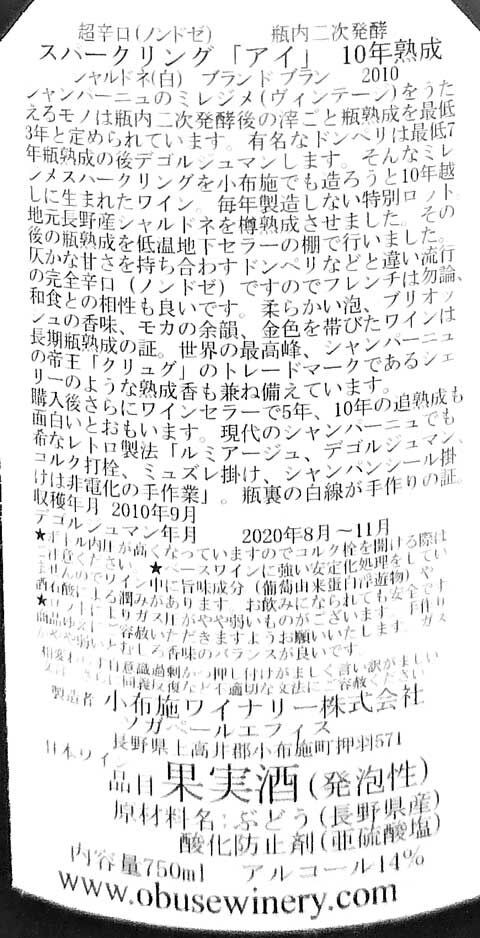 超辛口(ノンドゼ)　瓶内二次発酵
スパークリング「アイ」　10年熟成
シャルドネ(白)　ブランドブラン　2010
シャンパーニュのミレジメ(ヴィンテーン)をうた
えるモノは瓶内二次発酵後の滓ごと瓶熟成を最低
3年と定められています。有名なドンペリは最低7
年瓶熟成の後デゴルジュマンします。そんなミレ
ジメスパークリングを小布施でも造ろうと10年越
しに生まれたワイン。毎年製造しない特別ロット。
地元長野産シャルドネを樽熟成させました。その
後の瓶熟成を低温地下セラーの棚で行いました。
仄かな甘さを持ち合わすドンペリなどと違い流行
の完全辛口(ノンドゼ)ですのでフレンチは勿論、
和食との相性も良いです。柔らかい泡、ブリオッ
シュの香味、モカの余韻、金色を帯びたワインは
長期瓶熟成の証。世界の最高峰、シャンパーニュ
の帝王「クリュグ」のトレードマークであるシェ
リーのような熟成香も兼ね備えています。
購入後さらにワインセラーで5年、10年の追熟成も
面白いとおもいます。現代のシャンパーニュでも
希なレトロ製法「ルミアージュ、デゴルジュマン、
コルク打栓、ミュズレ掛け、シャンパンシール掛
けは非電化の手作業」。瓶裏の白線が手作りの証。
収穫年月 2010年9月
デゴルジュマン年月　2020年8月～11月
★ボトル内圧が高くなっていますのでコルク栓を開ける際は
ご注意ください。★ベースワインに強い安定化処理をしてい
ませんのでワイン中に旨味成分(葡萄由来蛋白浮遊物)や
酒石酸による濁みがあります。お飲みになられても安全です
★ロットによりガス圧がやや弱いものがございます。手作り
商品ゆえにご容赦いただきますようお願いいたします。ガス
がやや弱いとむしろ香味のバランスが良いです。
相変わらず自意識過剰かつ押し付けがましく言い訳がましい
同義反復など不適切な文法にご容赦ください
製造者 小布施ワイナリー株式会社
ソガペールエフィス
長野県上高井郡小布施町押羽571
日本ワイン
品目 果実酒(発泡性)
原材料名:ぶどう(長野県産)
酸化防止剤(亜硫酸塩)
内容量750ml　アルコール14%
www.obusewinery.com